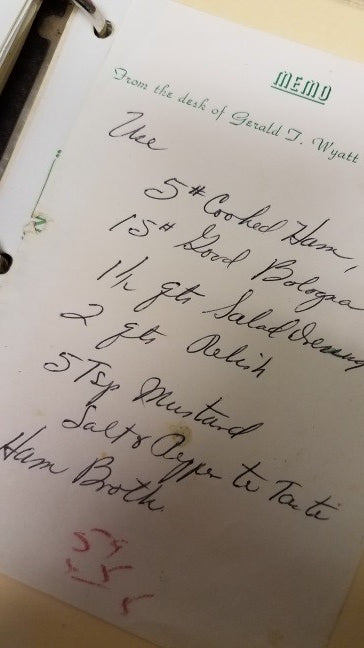 MEMO
From the desk of Gerald T. Wyatt
Use
5# Cooked Ham,
15# Good Bologna
1½ qts Salad Dressing
2 qts Relish
5 Tsp Mustard
Salt & Pepper to Taste
Ham Broth